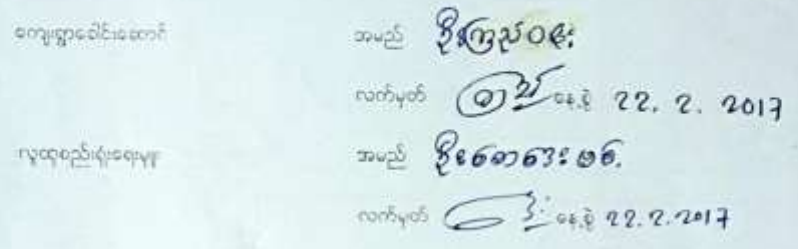 ကျေးရွာခေါင်းဆောင် အမည် ဦးကြည်ဝင်း
လက်မှတ် နေ့စွဲ 22. 2. 2017
လူထုစည်းရုံးရေးမှူး အမည်
လက်မှတ် နေ့စွဲ 22.2.2017